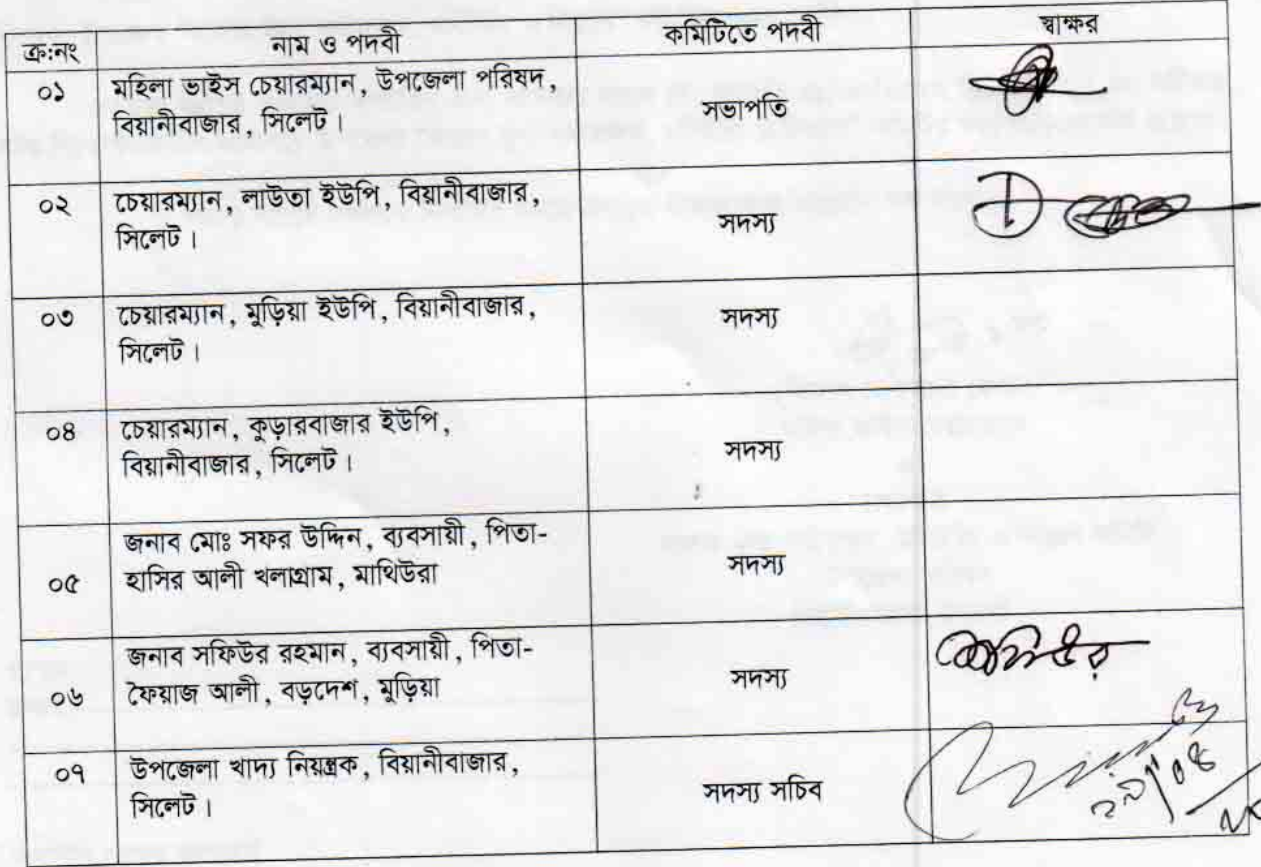 ক্র:নং নাম ও পদবী কমিটিতে পদবী স্বাক্ষর
০১ মহিলা ভাইস চেয়ারম্যান, উপজেলা পরিষদ,
বিয়ানীবাজার, সিলেট। সভাপতি
০২ চেয়ারম্যান, লাউতা ইউপি, বিয়ানীবাজার,
সিলেট। সদস্য
০৩ চেয়ারম্যান, মুড়িয়া ইউপি, বিয়ানীবাজার, সদস্য
সিলেট।
০৪ চেয়ারম্যান, কুড়ারবাজার ইউপি,
বিয়ানীবাজার, সিলেট। সদস্য
জনাব মোঃ সফর উদ্দিন, ব্যবসায়ী, পিতা-
০৫ হাসির আলী খলাগ্রাম, মাথিউরা সদস্য
জনাব সফিউর রহমান, ব্যবসায়ী, পিতা-
০৬ ফৈয়াজ আলী, বড়দেশ, মুড়িয়া সদস্য
০৭ উপজেলা খাদ্য নিয়ন্ত্রক, বিয়ানীবাজার,
সিলেট। সদস্য সচিব